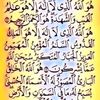 هُوَ اللَّهُ الَّذِي لَا إِلَٰهَ إِلَّا هُوَ عَالِمُ
الْغَيْبِ وَالشَّهَادَةِ هُوَ الرَّحْمَٰنُ الرَّحِيمُ
هُوَ اللَّهُ الَّذِي لَا إِلَٰهَ إِلَّا هُوَ الْمَلِكُ
الْقُدُّوسُ السَّلَامُ الْمُؤْمِنُ الْمُهَيْمِنُ
الْعَزِيزُ الْجَبَّارُ الْمُتَكَبِّرُ سُبْحَانَ اللَّهِ
عَمَّا يُشْرِكُونَ هُوَ اللَّهُ الْخَالِقُ
الْبَارِئُ الْمُصَوِّرُ لَهُ الْأَسْمَاءُ الْحُسْنَىٰ
يُسَبِّحُ لَهُ مَا فِي السَّمَاوَاتِ وَالْأَرْضِ